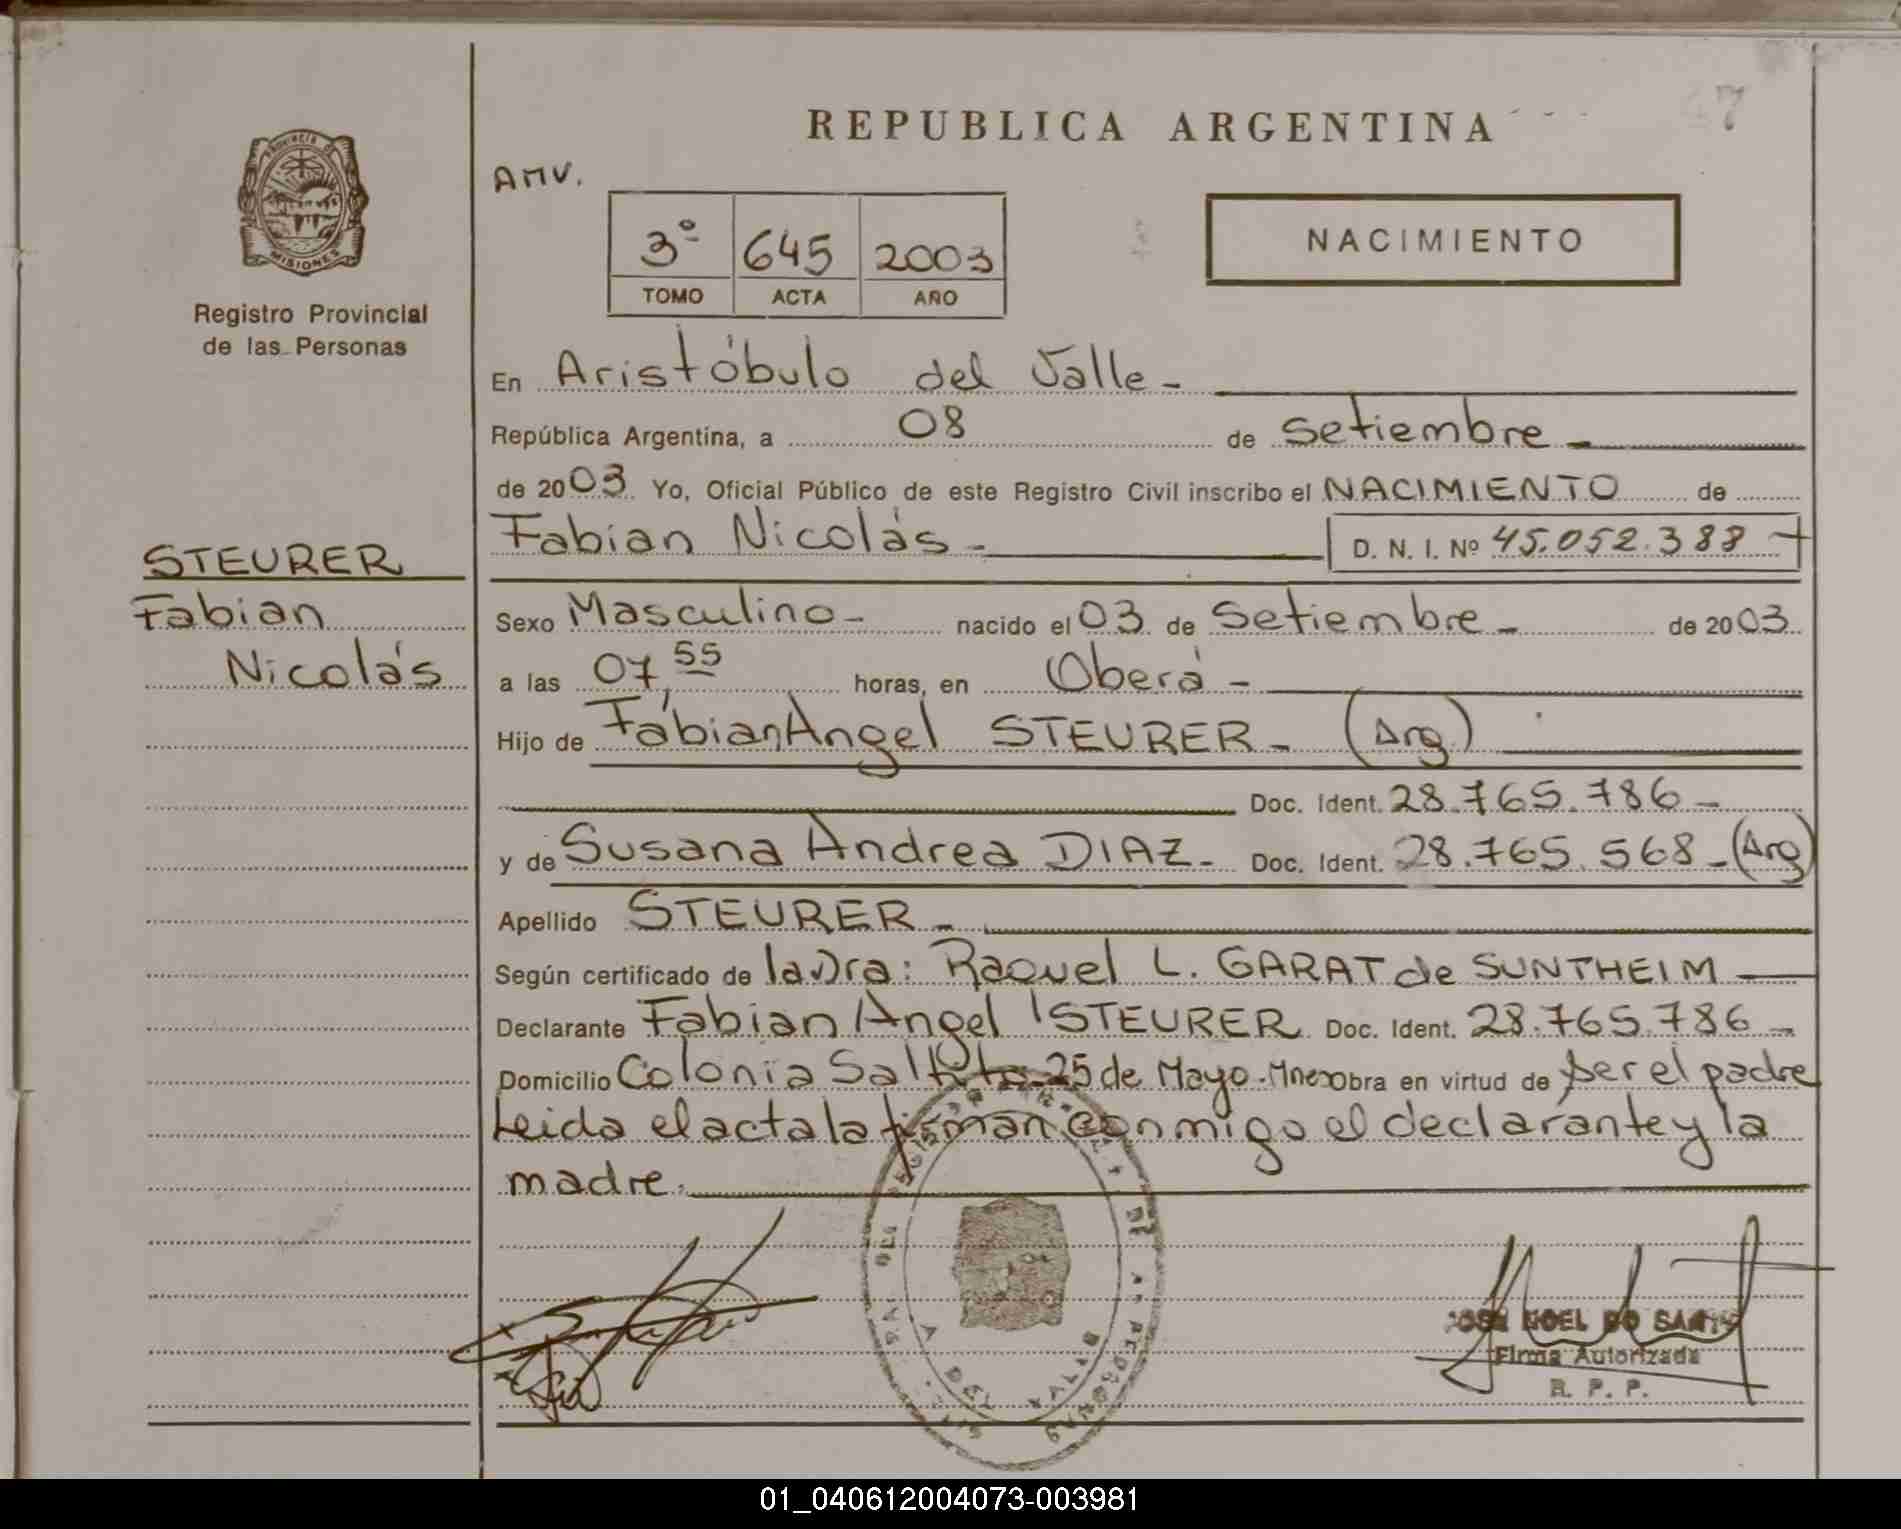 47
REPUBLICA ARGENTINA
AMV.
PROVINCIA DE
MISIONES
Registro Provincial
de las Personas
3º 645 2003
TOMO ACTA AÑO
NACIMIENTO
En Aristóbulo del Valle -
República Argentina, a 08 de Setiembre -
de 2003. Yo, Oficial Público de este Registro Civil inscribo el NACIMIENTO de
Fabian Nicolás - D. N. I. Nº 45.052.388 -
STEURER
Fabian
Nicolás
Sexo Masculino - nacido el 03 de Setiembre - de 2003
a las 07,55 horas, en Oberá -
Hijo de Fabian Angel STEURER - (Arg)
Doc. Ident. 28.765.786 -
y de Susana Andrea DIAZ - Doc. Ident. 28.765.568 - (Arg)
Apellido STEURER -
Según certificado de la Dra: Raquel L. GARAT de SUNTHEIM
Declarante Fabian Angel STEURER Doc. Ident. 28.765.786 -
Domicilio Colonia Saltito 25 de Mayo - Mnes Obra en virtud de ser el padre
Leida el acta la firman conmigo el declarante y la
madre.
DEL VALLE
Firma Autorizada
R. P. P.
01_040612004073-003981